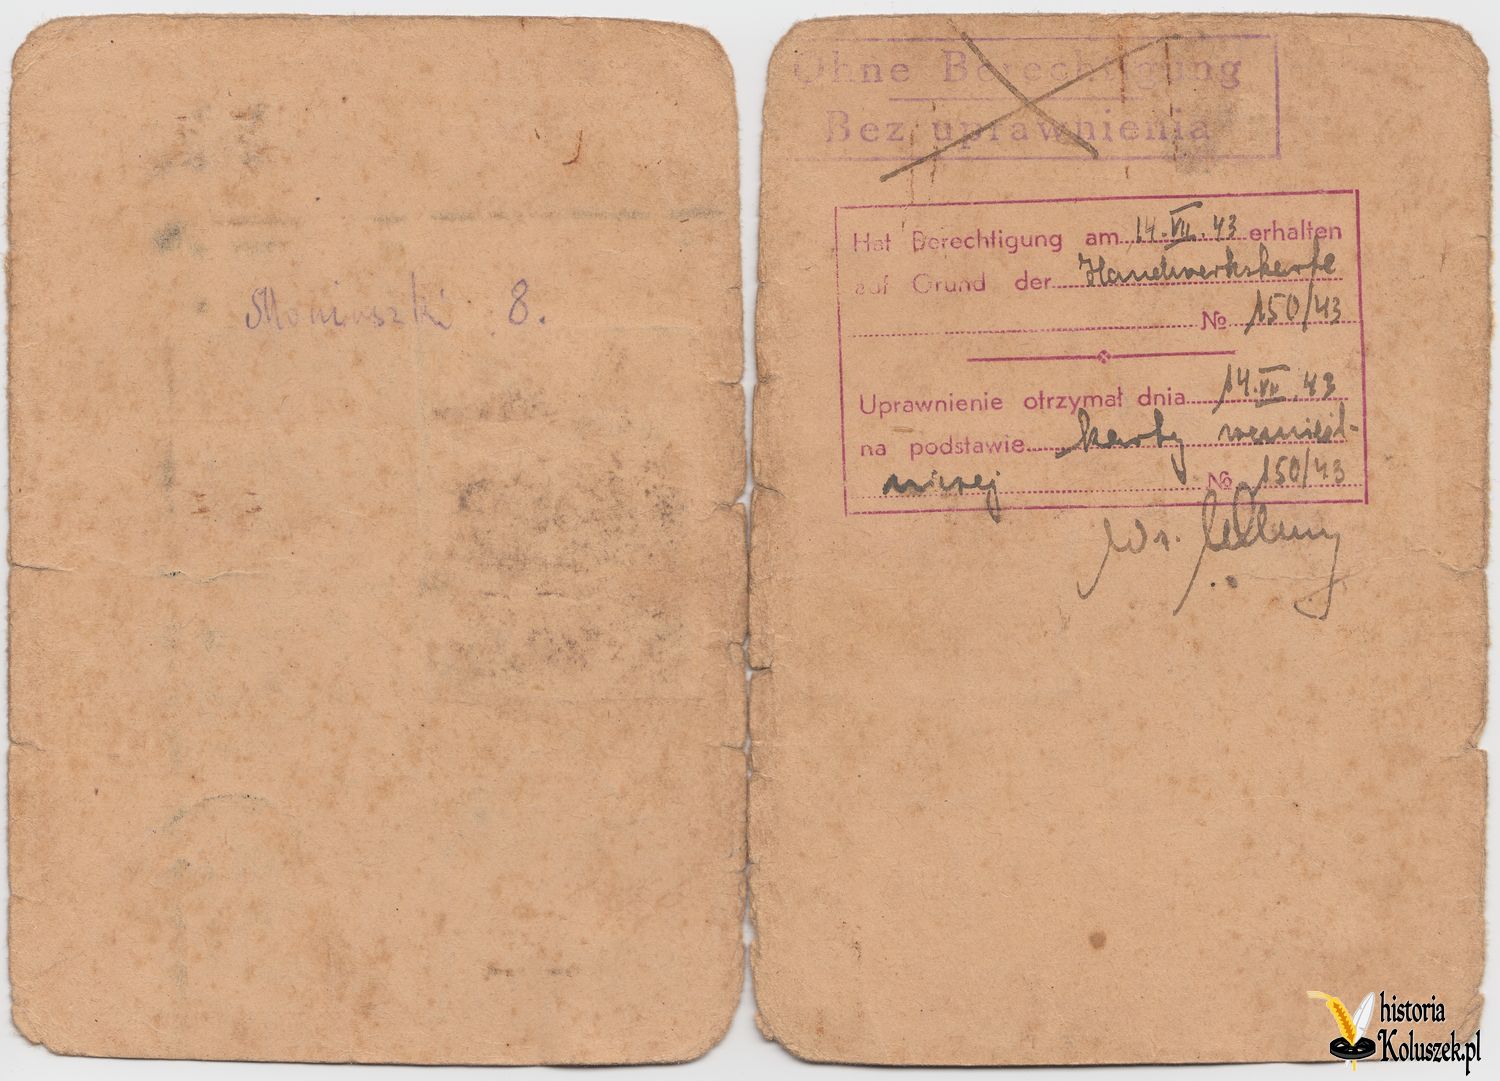 Moniuszki 8.
Ohne Berechtigung
Bez uprawnienia
Hat Berechtigung am 14.VII.43 erhalten
auf Grund der Handwerkskarte
№ 150/43
Uprawnienie otrzymał dnia 14.VII.43
na podstawie karty rzemieśl-
niczej № 150/43
historia
Koluszek.pl